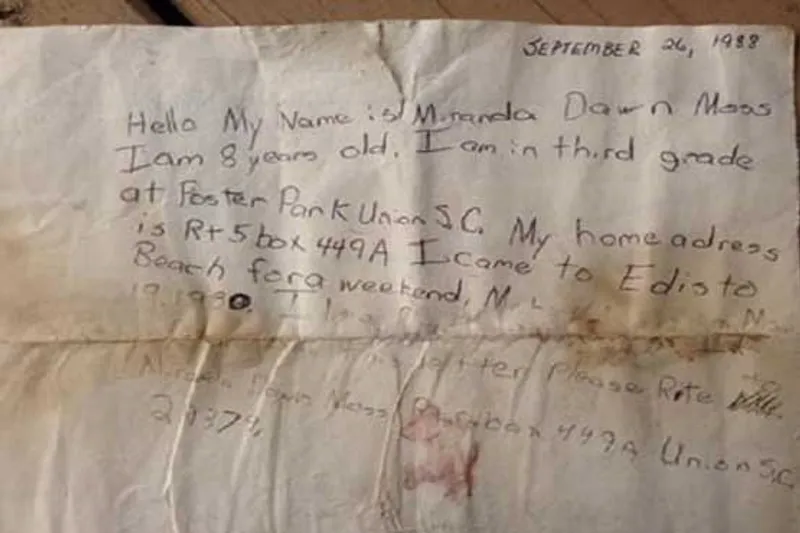 SEPTEMBER 26, 1988
Hello My Name is Miranda Dawn Moss
I am 8 years old. I am in third grade
at Foster Park Union S.C. My home adress
is Rt 5 box 449A I came to Edisto
Beach for a weekend, M
19, 1980. I
letter Please Rite to
Miranda Dawn Moss box 449A Union S.C.
29379,